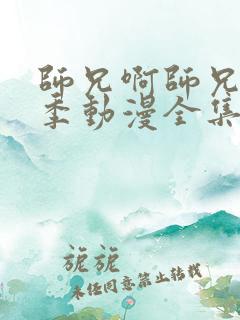 師兄啊師兄
季動漫全集
旎旎
未經同意禁止轉載